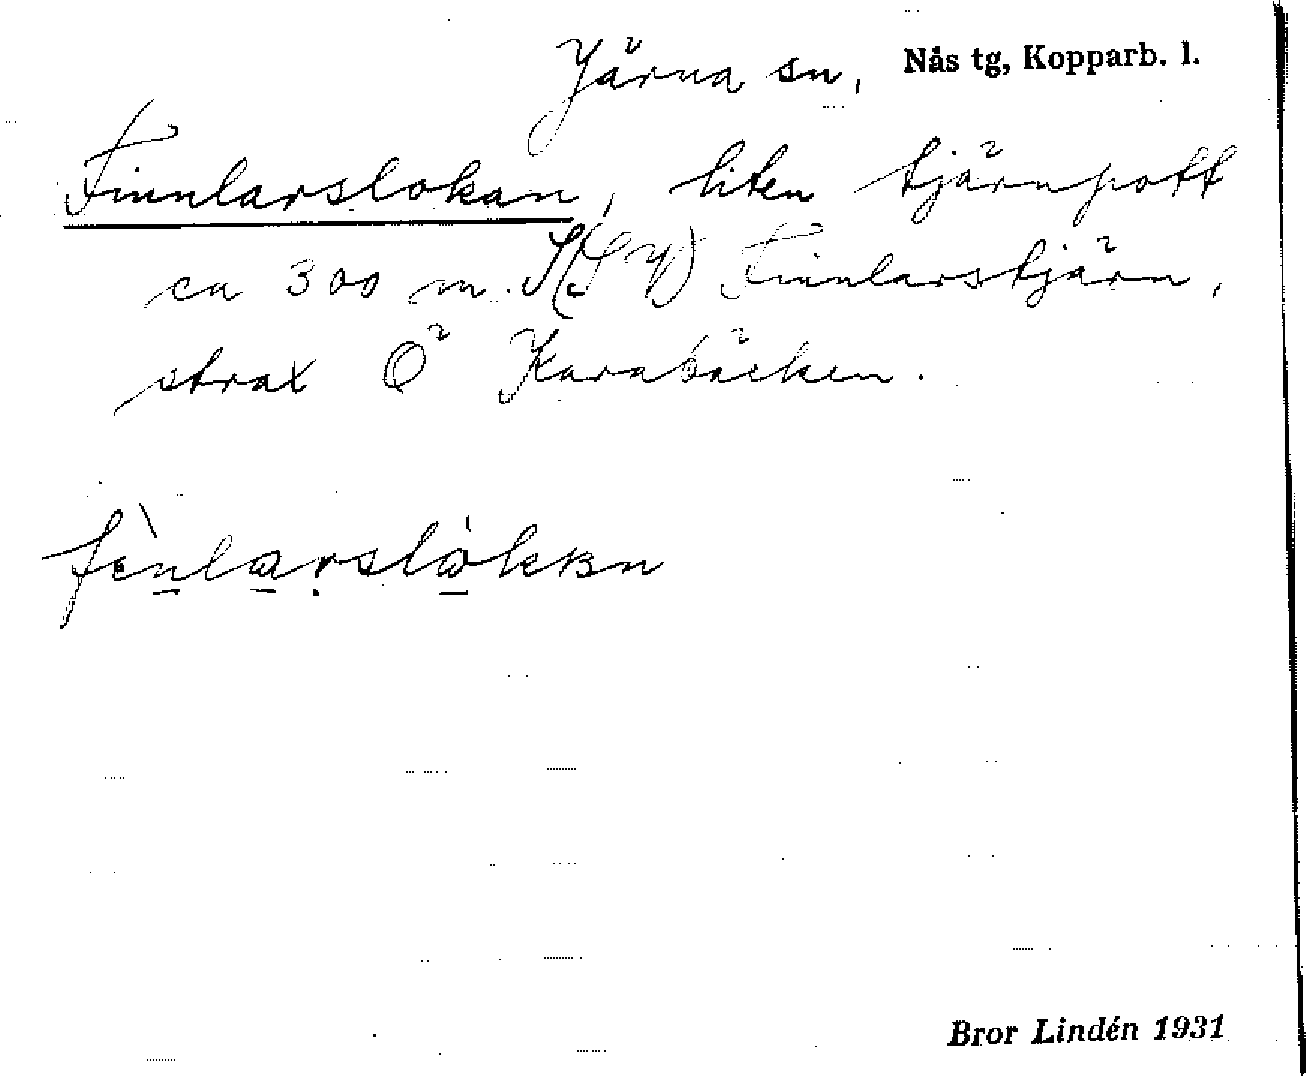 Järna sn, Nås tg, Kopparb. l.
Finnlarslokan, liten tjärnpott
ca 300 m. S(SV) Finnlarstjärn,
strax Ö Karabäcken.
Bror Lindén 1931